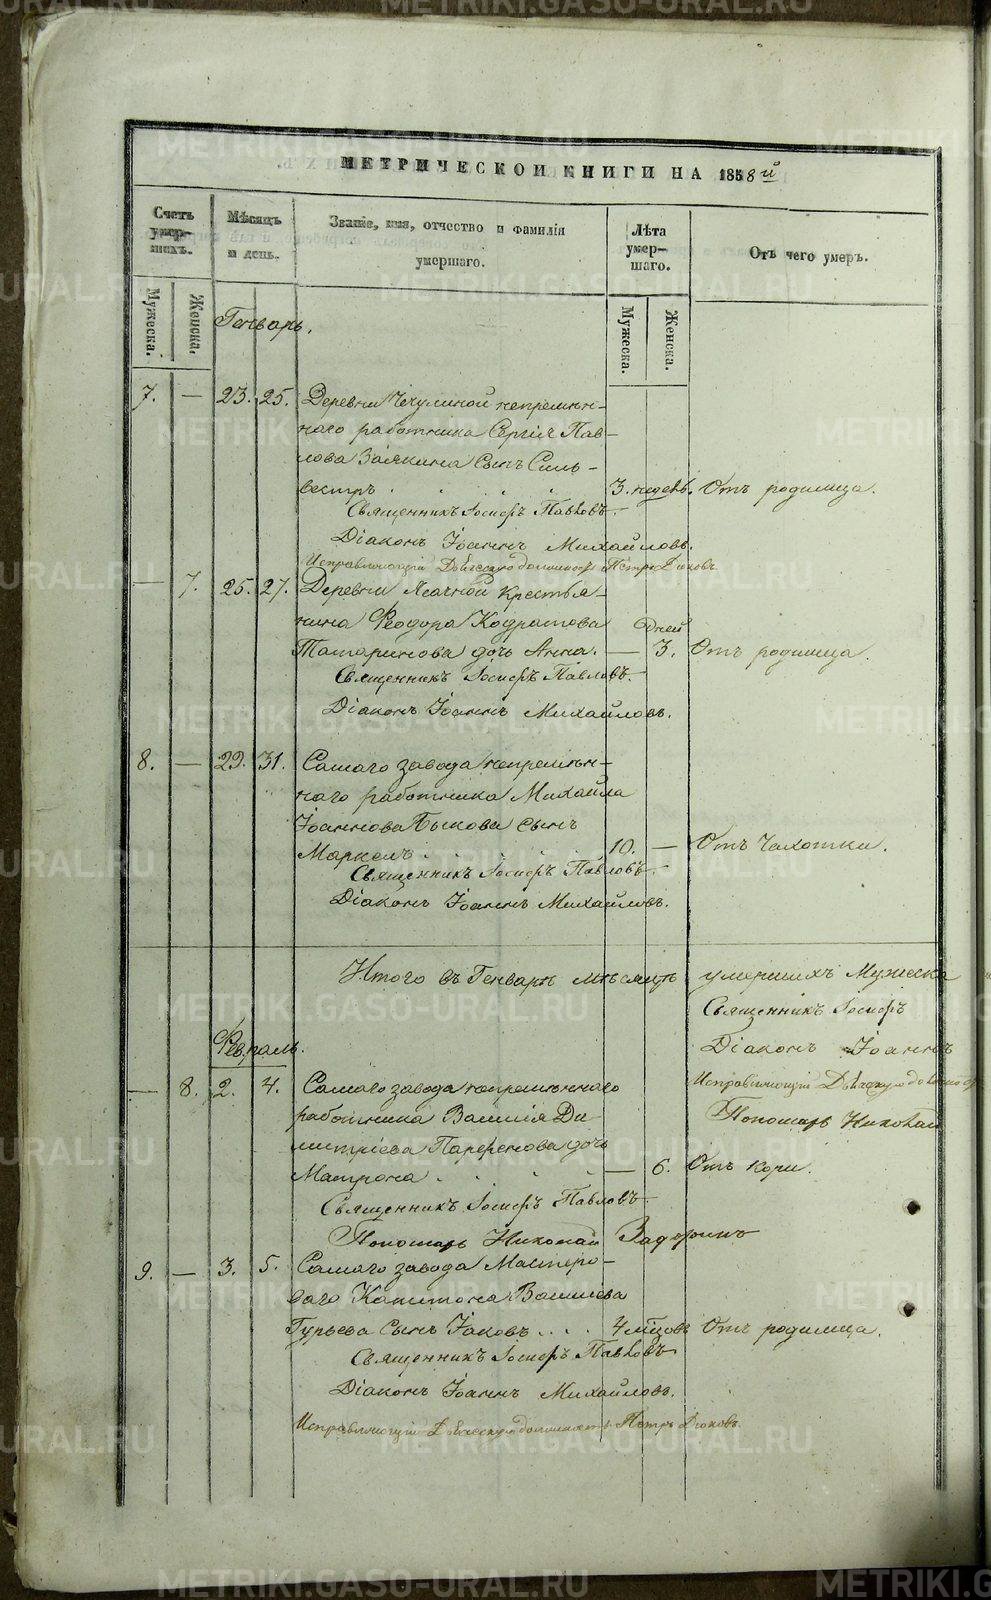 МЕТРИЧЕСКОЙ КНИГИ НА 1858й
Счетъ умер-шихъ.
Мѣсяцъ и день.
Званіе, имя, отчество и фамилія умершаго.
Лѣта умер-шаго.
Отъ чего умеръ.
Мужеска.
Женска.
Мужеска.
Женска.
Генварь.
7. — 23. 25. Деревни Чечулиной непремѣн-
наго работника Сергія Пав-
лова Заякина сынъ Силь-
вестръ . . . . 3. недель. Отъ родимца.
Священникъ Іосифъ Павловъ.
Діаконъ Іоаннъ Михайловъ.
Исправляющій Дьяческую должность Петръ Дюковъ
— 7. 25. 27. Деревни Ясачной крестья-
нина Ѳеодора Кодратова
дней
Татаринова дочь Анна. — 3. Отъ родимца.
Священникъ Іосифъ Павловъ.
Діаконъ Іоаннъ Михайловъ.
8. — 29. 31. Самаго завода непремѣн-
наго работника Михаила
Іоаннова Быкова сынъ
Маркелъ . . . . 10. — Отъ чахотки.
Священникъ Іосифъ Павловъ.
Діаконъ Іоаннъ Михайловъ.
Итого въ Генварѣ мѣсяцѣ умершихъ Мужеска
Священникъ Іосифъ
Діаконъ Іоаннъ
Исправляющій Дьяческую
Пономарь Николай
Февраль.
— 8. 2. 4. Самаго завода непремѣннаго
работника Василія Ди-
митріева Парфенова дочь
Матрона . . . . — 6. Отъ кори.
Священникъ Іосифъ Павловъ
Пономарь Николай Задоринъ
9. — 3. 5. Самаго завода Мастеро-
ваго Капитона Васильева
Гурьева сынъ Іаковъ . . . 4 мѣсцовъ Отъ родимца.
Священникъ Іосифъ Павловъ
Діаконъ Іоаннъ Михайловъ.
Исправляющій Дьяческую должность Петръ Дюковъ
METRIKI.GASO-URAL.RU